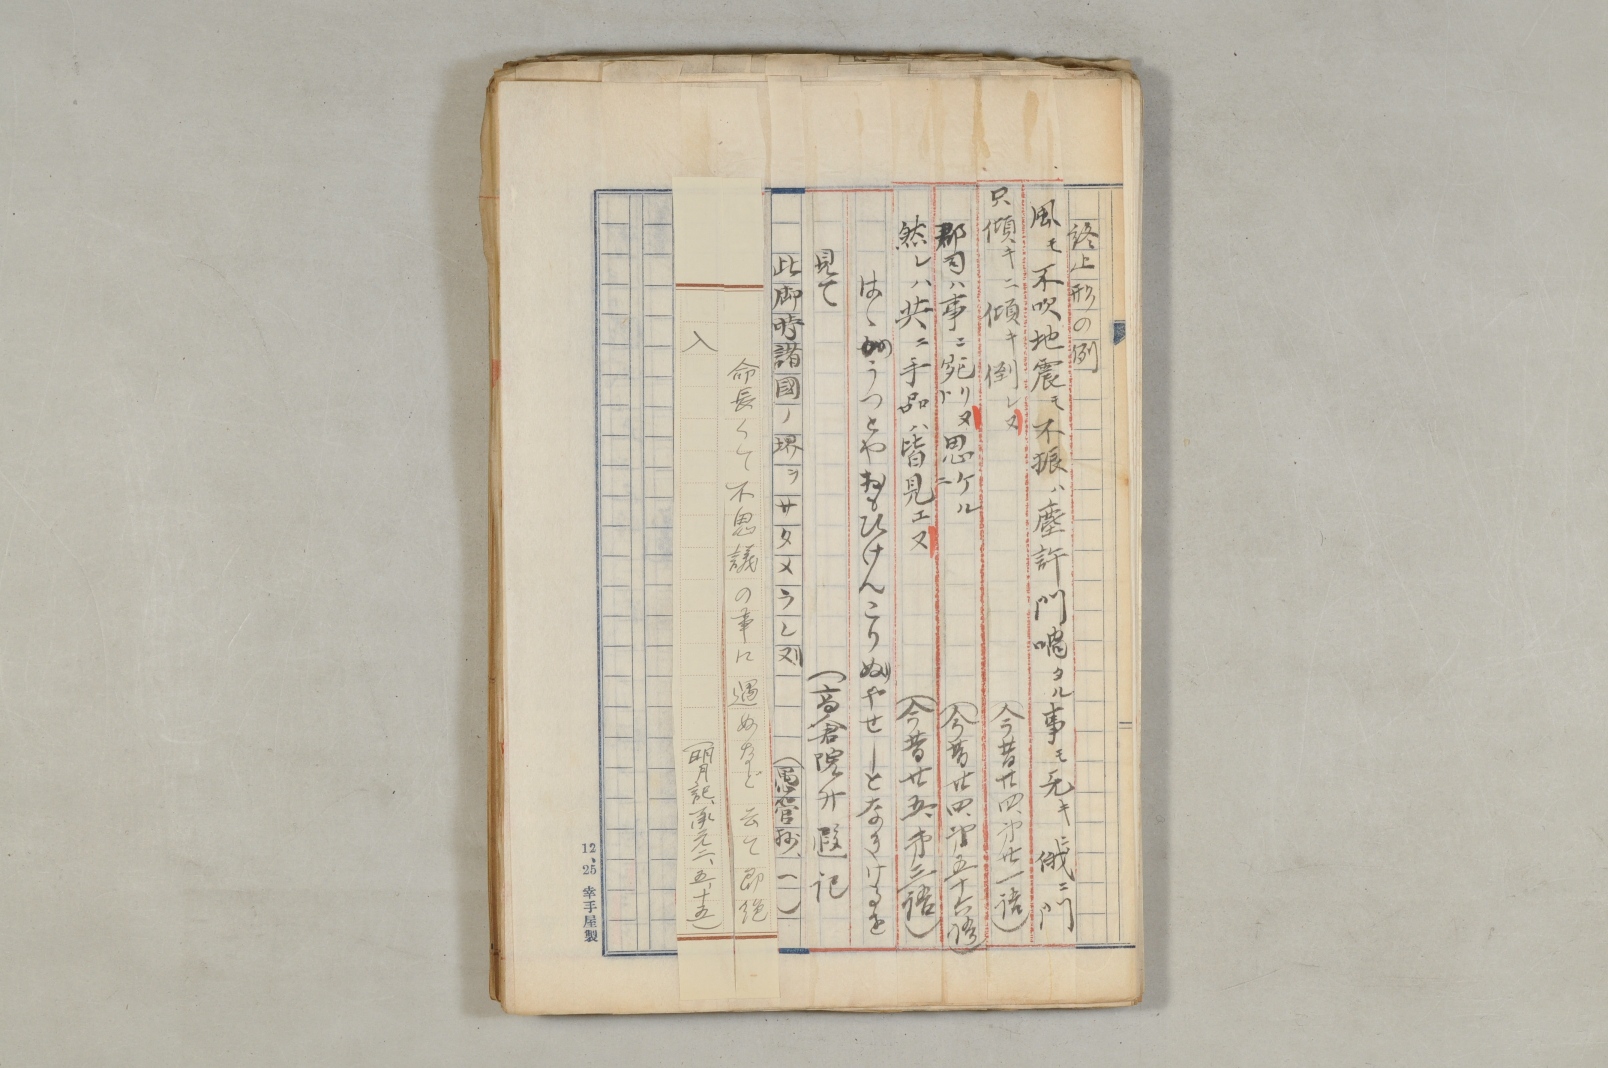 終止形の例
風モ不吹地震モ不振ハ塵許門鳴タル事モ无キニ俄ニ門
只傾キニ傾キ倒レヌ
(今昔廿四、第廿一語)
郡司ハ事ニ宛リヌト思ケルニ
(今昔廿四、第五十六語)
然レハ共ニ手品ハ皆見エヌ
(今昔廿五、第三語)
はゝかうつとやおもひけんこりぬやせしとなきけるを
見て
(高倉院升遐記
此御時諸國ノ堺ヲサタメラレヌ
(愚管抄、一)
命長くて不思議の事に遇ぬなど云て即絶
入
(明月記、承元六、五、十五)
12、25 幸手屋製